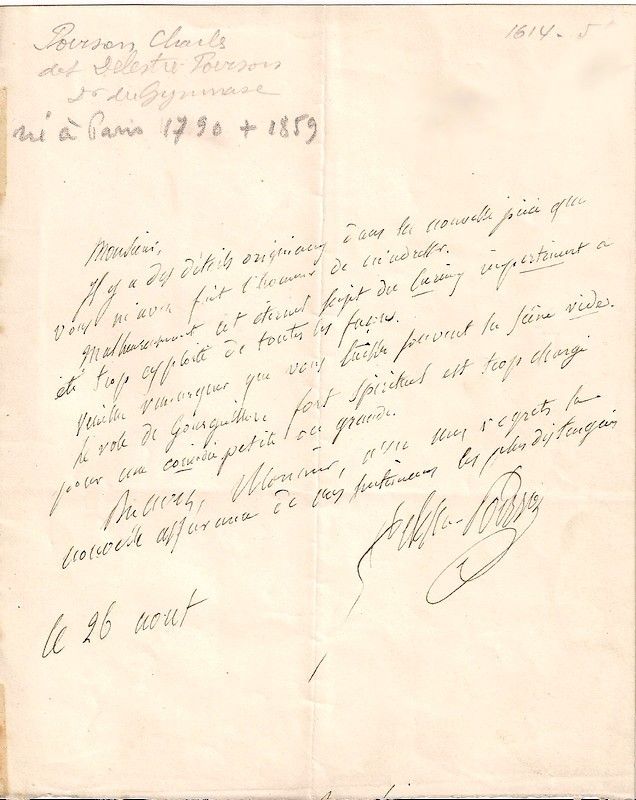 1614 - 5
Poirson Charles
det Delestre-Poirson
Dr du Gymnase
né à Paris 1790 + 1859
Monsieur,
Il y a des détails originaux dans la nouvelle pièce que
vous m'avez fait l'honneur de m'adresser.
Malheureusement cet éternel sujet du cousin important a
été trop exploité de toutes les façons.
Veuillez remarquer que vous laissez souvent la scène vide.
le role de fort spirituel est trop chargé
pour une comédie petite ou grande.
Recevez, Monsieur, avec mes regrets la
nouvelle assurance de mes sentimens les plus distingués
Delestre-Poirson
le 26 aout